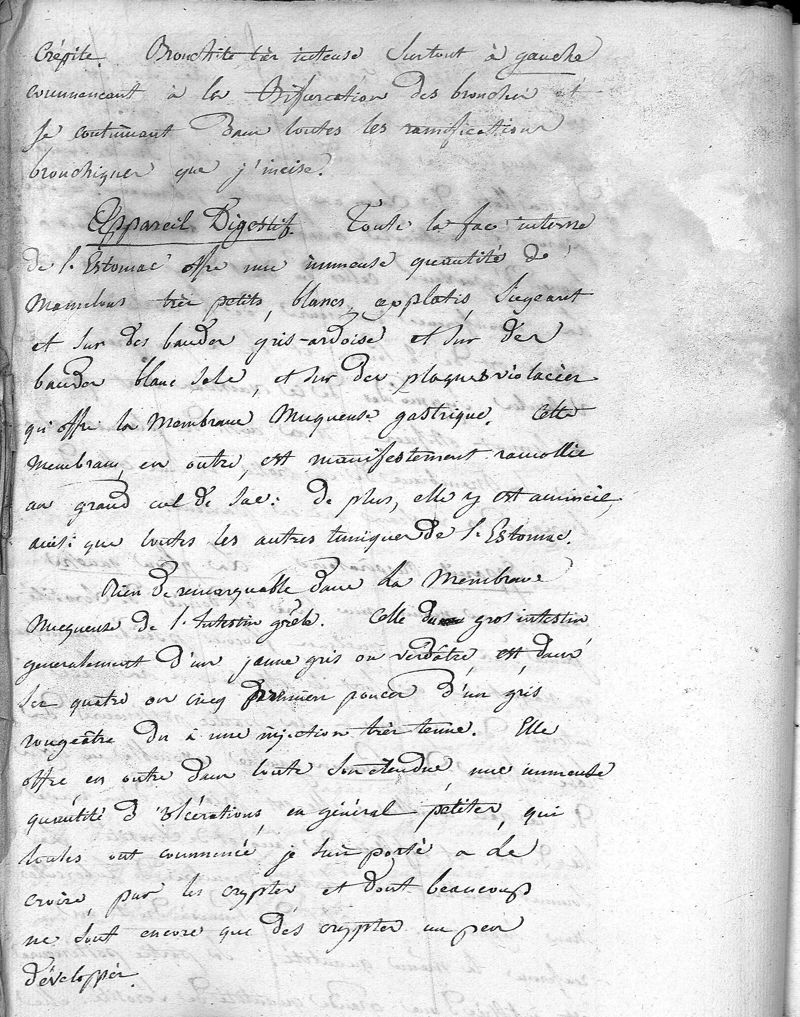 crépite. Bronchite très intense surtout à gauche
commencant à la Bifurcation des bronches et
se continuant dans toutes les ramifications
bronchiques que j'incise.
Appareil Digestif. Toute la face interne
de l'Estomac offre une immense quantité de
Mamelons très petits, blancs, applatis, siegeant
et sur des bandes gris-ardoise et sur des
bandes blanc sale, et sur des plaques violacées
qu'offre la Membrane Muqueuse gastrique. Cette
Membrane, en outre, est manifestement ramollie
au grand cul de sac: de plus, elle y est amincie,
ainsi que toutes les autres tuniques de l'Estomac.
Rien de remarquable dans la Membrane
Muqueuse de l'Intestin grêle. Celle du gros intestin
generalement d'un jaune gris ou verdâtre est dans
ses quatre ou cinq premiers pouces d'un gris
rougeâtre du à une injection très tenue. Elle
offre en outre dans toute son etendue, une immense
quantité d'ulcérations, en général petites, qui
toutes ont commencé, je suis porté a le
croire, par les cryptes et dont beaucoup
ne sont encore que des cryptes un peu
développés.